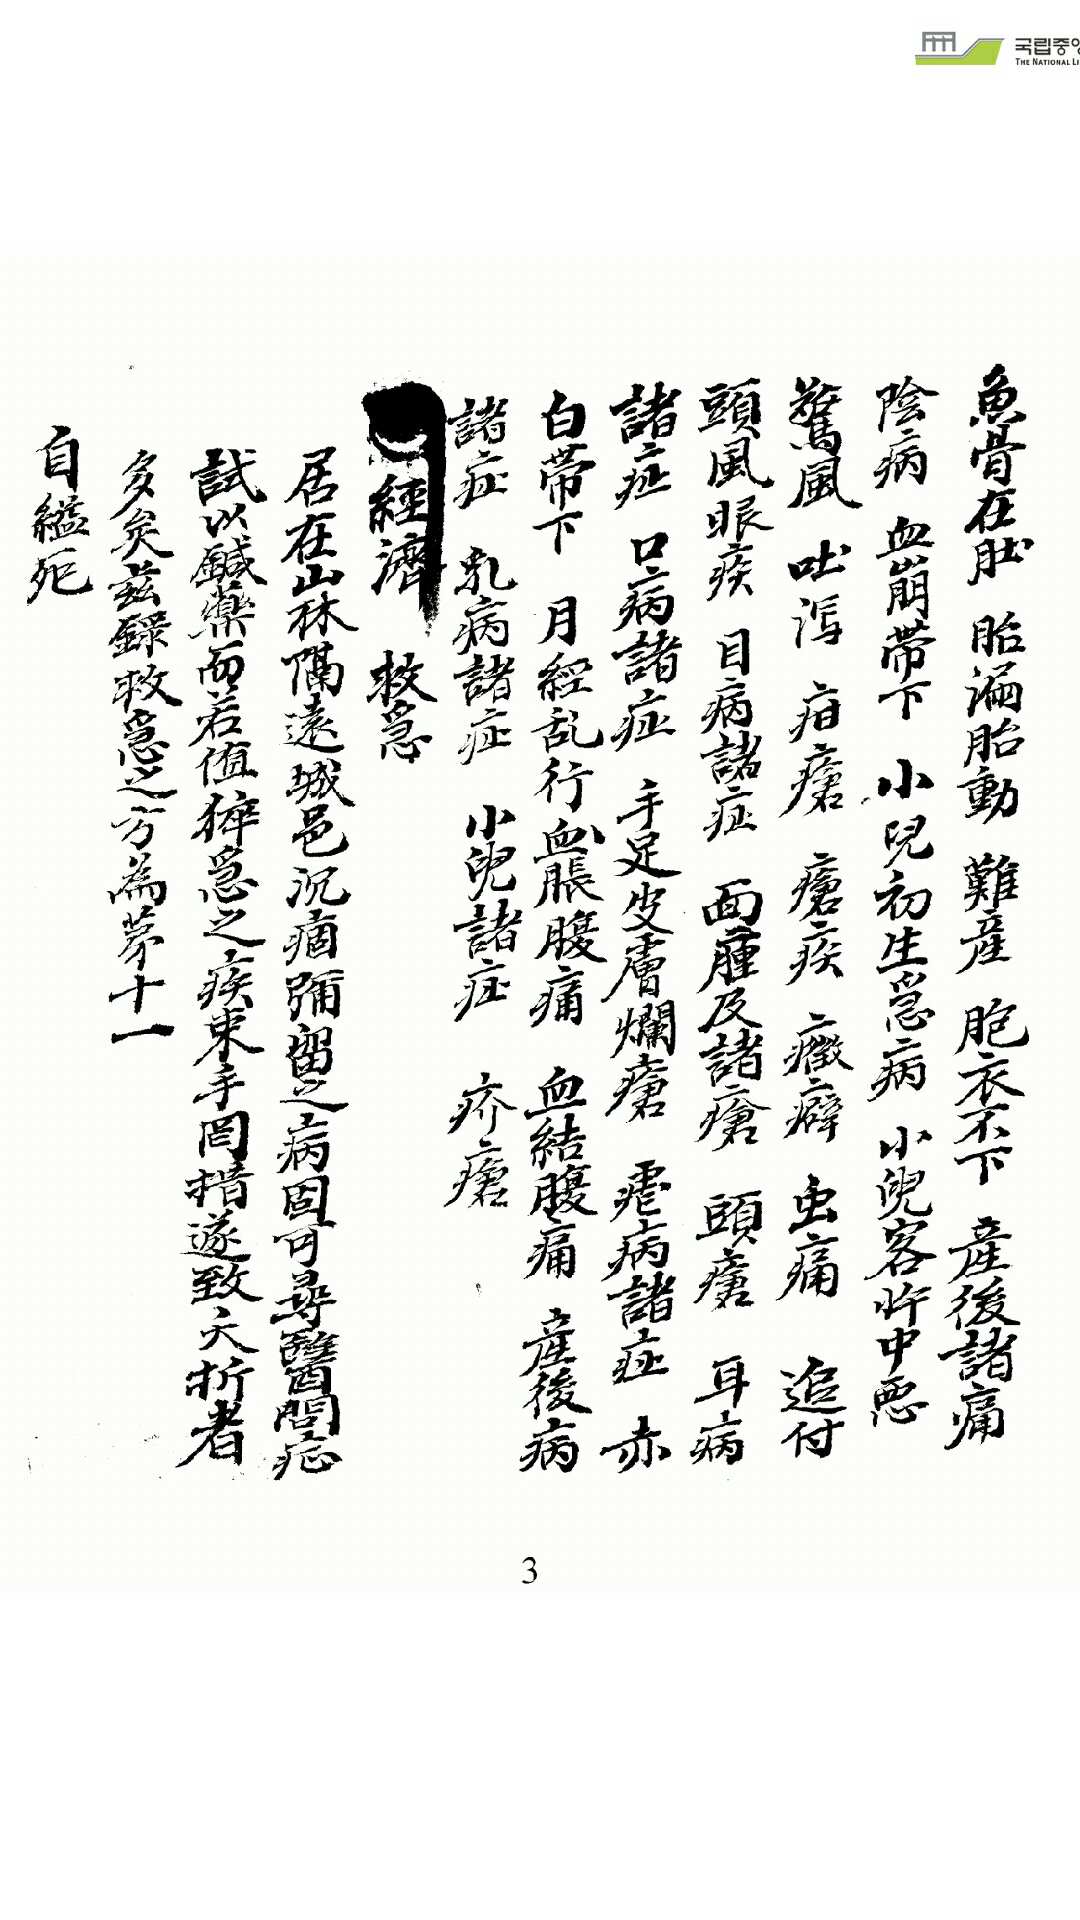 국립중앙
THE NATIONAL LI
魚骨在肚 胎漏胎動 難産 胞衣不下 産後諸痛
陰病 血崩帶下 小兒初生急病 小兒客忤中悪
驚風 吐泻 疳瘡 瘡疾 癥癖 虫痛 追付
頭風眼疾 目病諸症 面腫及諸瘡 頭瘡 耳病
諸症 口病諸症 手足皮膚爛瘡 瘧病諸症 赤
白帶下 月經乱行血脹腹痛 血結腹痛 産後病
諸症 乳病諸症 小兒諸症 疥瘡
經濟 救急
居在山林隔遠城邑沉痼彌留之病固可尋醫問症
試以鍼藥而若値猝急之疾束手罔措遂致夭折者
多矣茲錄救急之方為第十一
自縊死
3